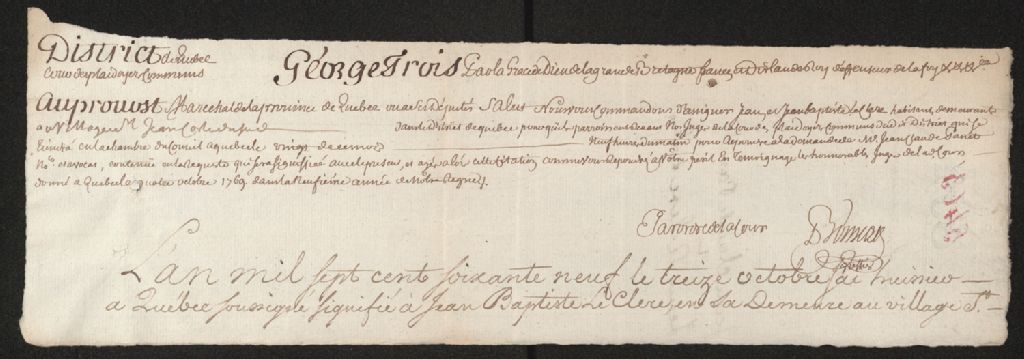 District de Quebec
Cour des plaidoyer Communs
George Trois Par la Grace de Dieu de la grande Bretagne france et Irlande Roy deffenseur de la foy
Au prouost Marechal de la province de Quebec ou a ses Deputés Salut Nous vous Commandons d'assigner Jean et Jean Baptiste Le Clerc habitans demeurant
au Village St Jean Coté du sud dans le District de quebec pour quil paroissent devant Nos Juge de la Cour des Plaidoyer Communs du dit District qui se
Tiendra en la chambre du Conseil a quebec le vingt de ce mois Neuf heures du matin pour Repondre a la demande de Me. Jean
No.re et avocat, contenue en la Requete qui sera signiffié avec le present, et aye de lad. Citation comme vous deponderes a Notre peril En Temoignage les honnorables Juge de lad. Cour
donné a Quebec le quatre octobre 1769. dans la Neufieme année de Notre Regne
Par ordre de la Cour
L'an mil sept cent soixante neuf le treize octobre
a Québec soussigné signifié à Jean Baptiste Le Clerc, en sa Demeure au village St.